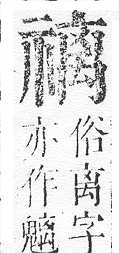 䄜
俗离字
亦作魑